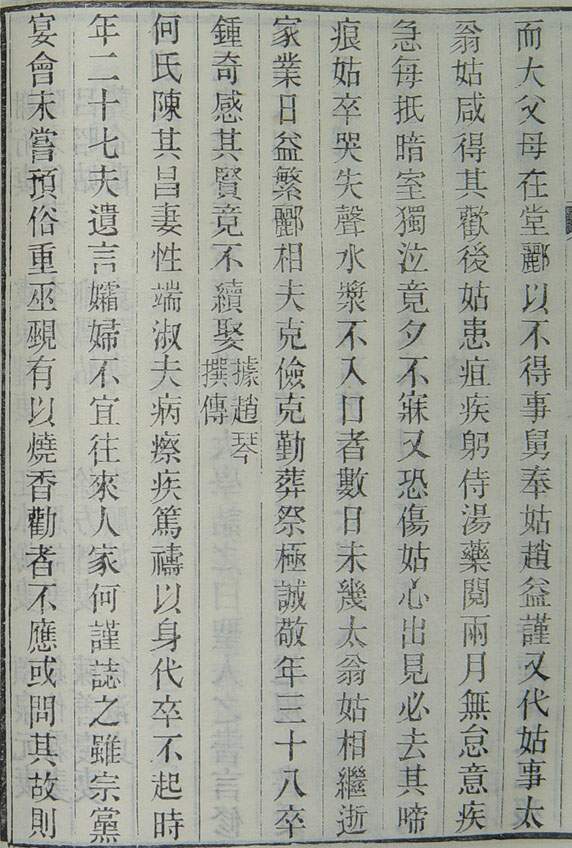 而大父母在堂酈以不得事舅奉姑趙益謹又代姑事太
翁姑咸得其歡後姑患疽疾躬侍湯藥閱兩月無怠意疾
急每抵暗室獨泣竟夕不寐又恐傷姑心出見必去其啼
痕姑卒哭失聲水漿不入口者數日未幾太翁姑相繼逝
家業日益繁酈相夫克儉克勤葬祭極誠敬年三十八卒
鍾奇感其賢竟不續娶據趙琴撰傳
何氏陳其昌妻性端淑夫病瘵疾篤禱以身代卒不起時
年二十七夫遺言孀婦不宜往來人家何謹誌之雖宗黨
宴會未嘗預俗重巫覡有以燒香勸者不應或問其故則